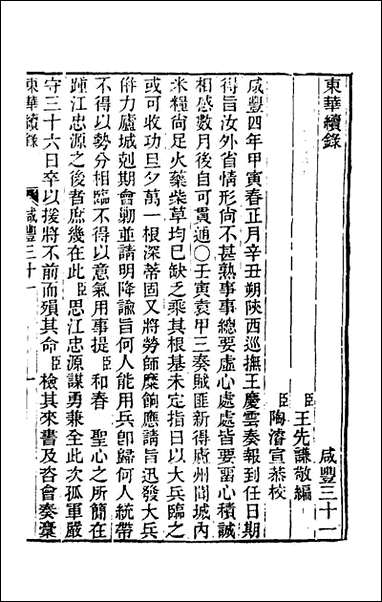 東華續錄
咸豐三十一
臣王先謙敬編
臣陶濬宣恭校
咸豐四年甲寅春正月辛丑朔陝西巡撫王慶雲奏報到任日期
得旨汝外省情形尚不甚熟事事總要虛心處處皆要畱心積誠
相感數月後自可貫通〇壬寅袁甲三奏賊匪新得廬州聞城內
米糧尙足火藥柴草均已缺之乘其根基未定指日以大兵臨之
或可收功旦夕萬一根深蒂固又將勞師糜餉應請旨迅發大兵
倂力廬城剋期會勦並請明降諭旨何人能用兵卽歸何人統帶
不得以勢分相臨不得以意氣用事提臣和春 聖心之所簡在
踵江忠源之後者庶幾在此臣思江忠源謀勇兼全此次孤軍嚴
守三十六日卒以援將不前而殞其命臣檢其來書及咨會奏稾
東華續錄 咸豐三十一 一